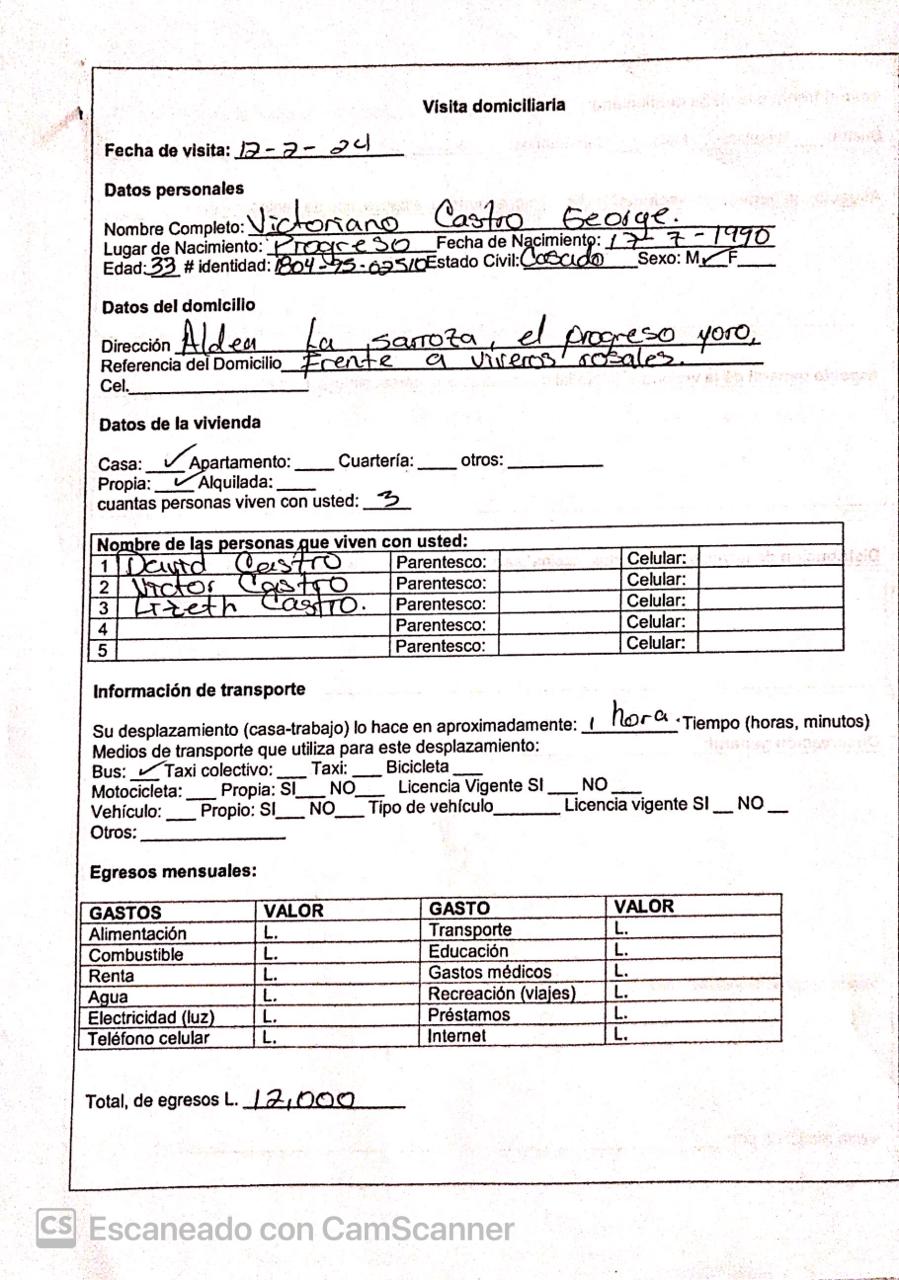 Visita domiciliaria
Fecha de visita: 12-2-24
Datos personales
Nombre Completo: Victoriano Castro George.
Lugar de Nacimiento: Progreso Fecha de Nacimiento: 17-7-1990
Edad: 33 # identidad: 1804-95-02510 Estado Civil: Casado Sexo: M ✓ F____
Datos del domicilio
Dirección Aldea La sarroza, el progreso yoro,
Referencia del Domicilio Frente a viveros rosales.
Cel.
Datos de la vivienda
Casa: ✓ Apartamento: ____ Cuartería: ____ otros: ____
Propia: ✓ Alquilada: ____
cuantas personas viven con usted: 3
Nombre de las personas que viven con usted:
1 David Castro Parentesco: Celular:
2 Victor Castro Parentesco: Celular:
3 Lizeth Castro. Parentesco: Celular:
4 Parentesco: Celular:
5 Parentesco: Celular:
Información de transporte
Su desplazamiento (casa-trabajo) lo hace en aproximadamente: 1 hora. Tiempo (horas, minutos)
Medios de transporte que utiliza para este desplazamiento:
Bus: ✓ Taxi colectivo: ___ Taxi: ___ Bicicleta ___
Motocicleta: ___ Propia: SI___ NO___ Licencia Vigente SI ___ NO ___
Vehículo: ___ Propio: SI___ NO___ Tipo de vehículo______ Licencia vigente SI __ NO __
Otros: ____
Egresos mensuales:
GASTOS VALOR GASTO VALOR
Alimentación L. Transporte L.
Combustible L. Educación L.
Renta L. Gastos médicos L.
Agua L. Recreación (viajes) L.
Electricidad (luz) L. Préstamos L.
Teléfono celular L. Internet L.
Total, de egresos L. 12,000
CS Escaneado con CamScanner